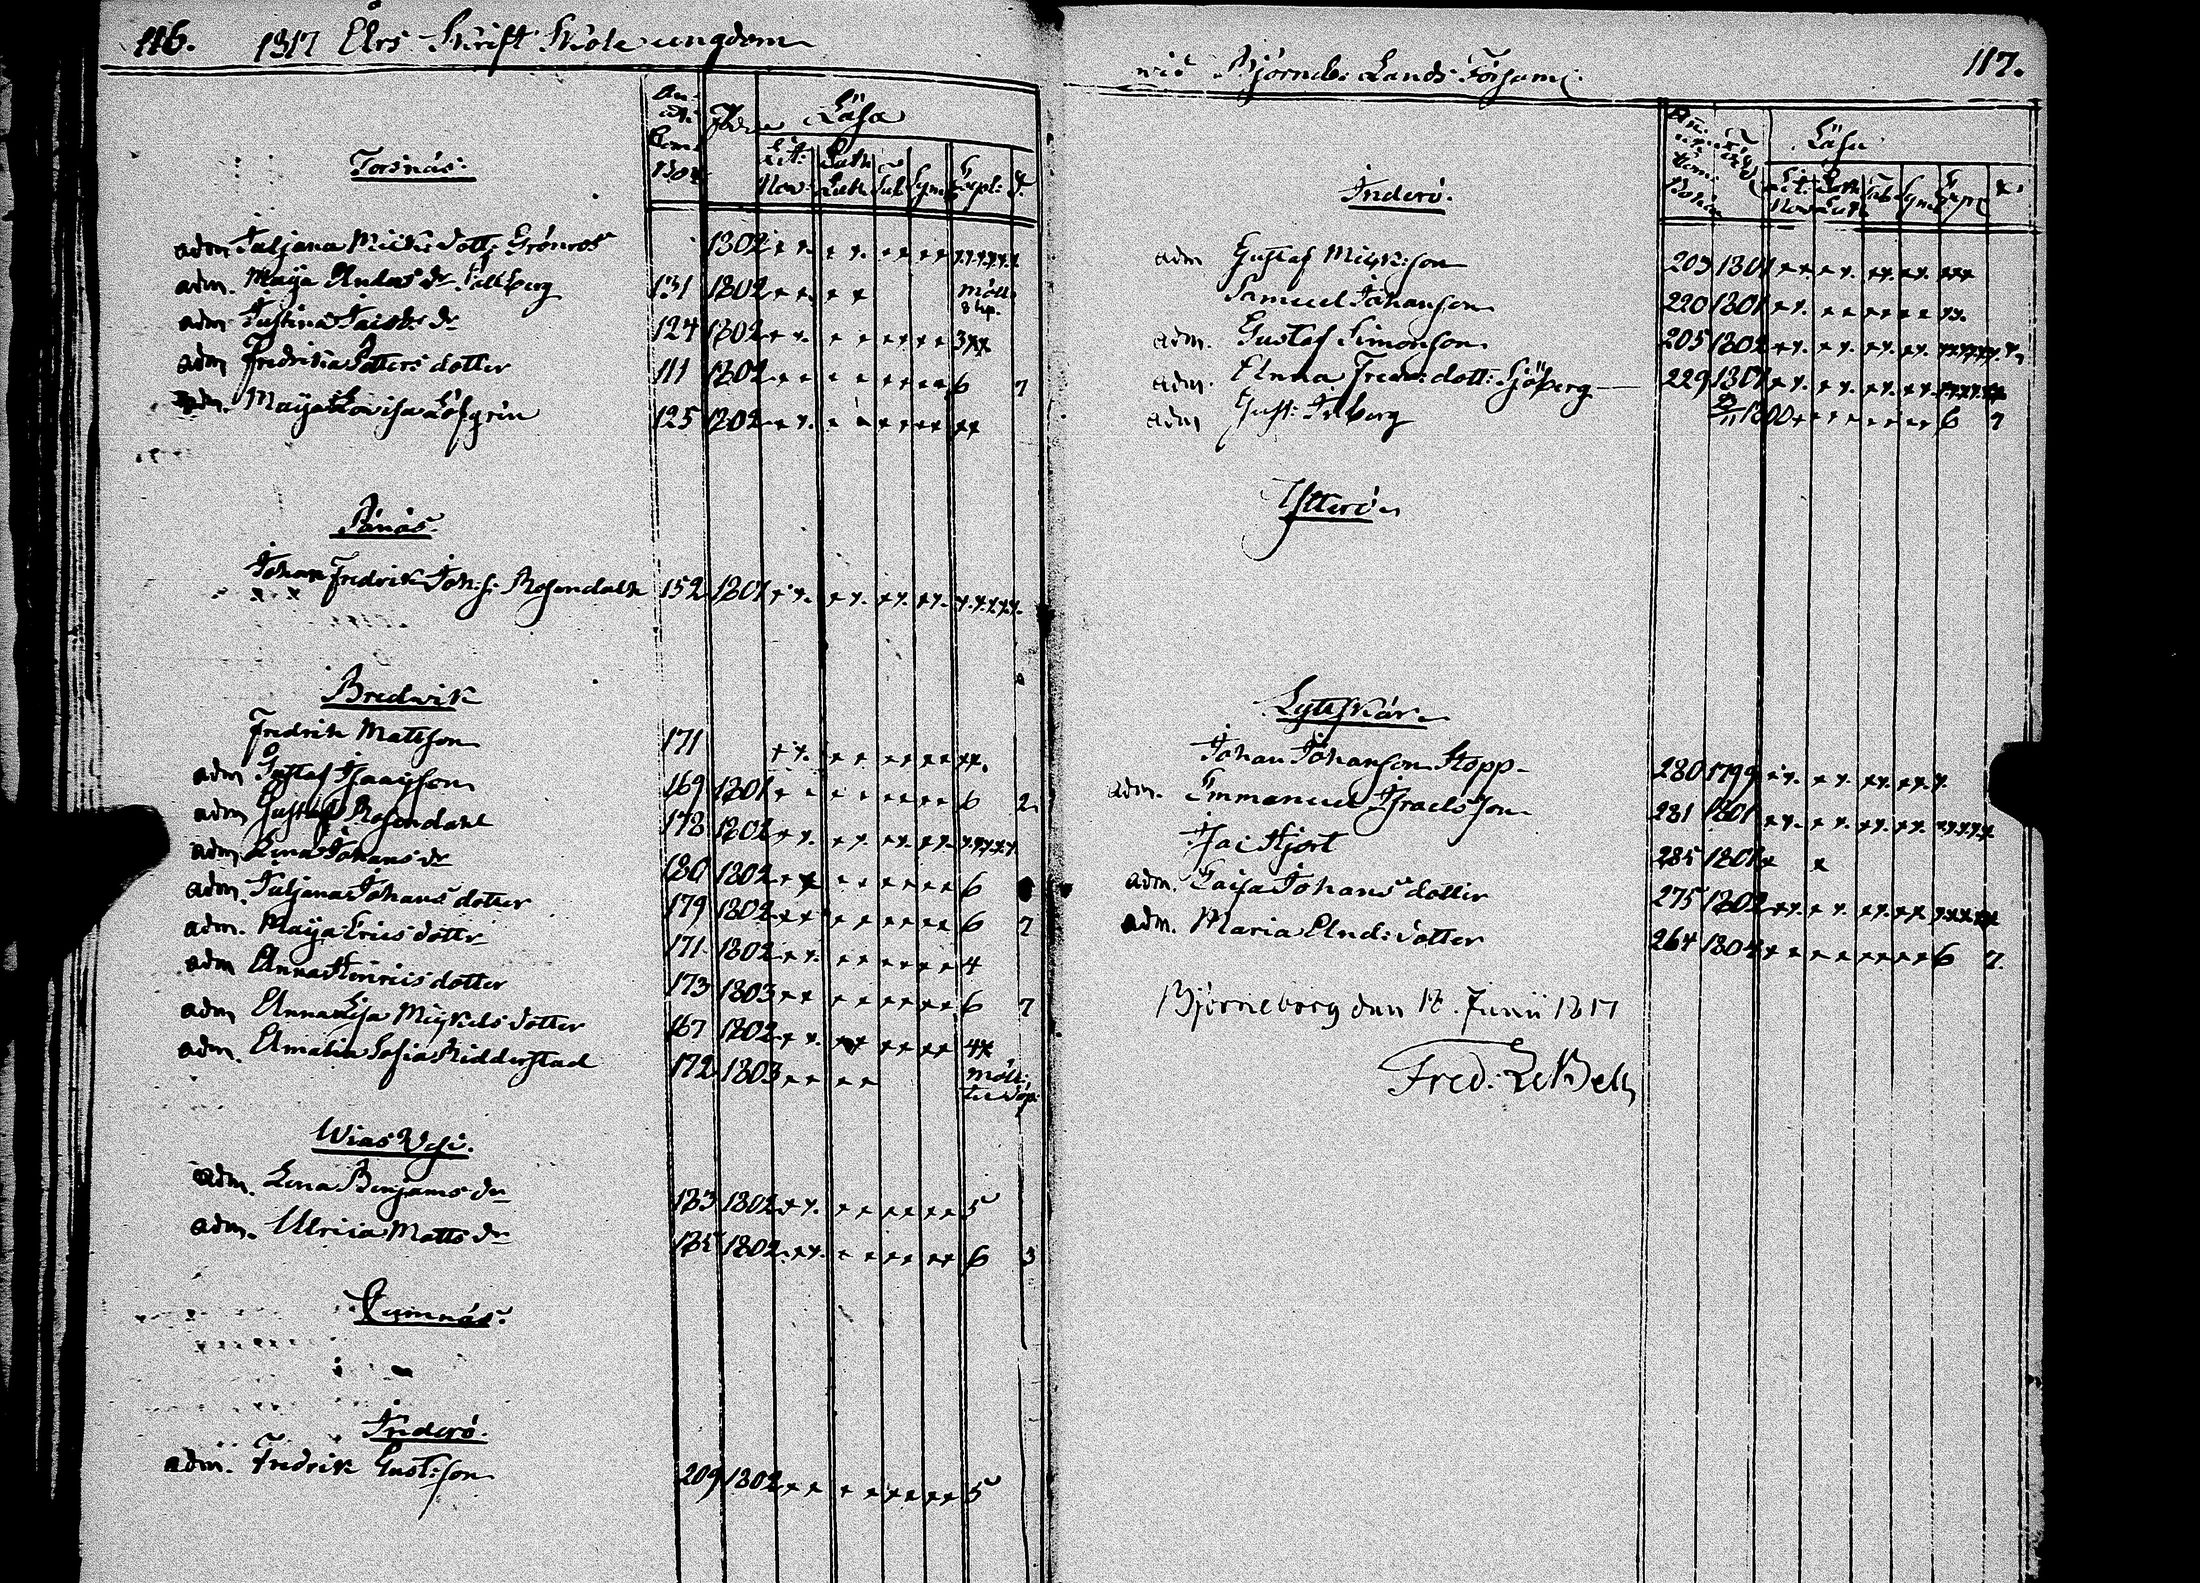 116. 1817 Års Skrift Skole ungdom
An-
Com:
Bok
Född
Läsa
Lit: Nov:
Cath Luth
Tab
Sym
Expl:
Torsnäs:
adm Juljana Mick: dott: Grönros 1802 x x. x x. x x x x
adm. Maija Anders dr Sellberg 131 1802 x x. x x
adm Justina Jacobs dr 124 1802 x x. x x x x x x 3xx
adm Fredrika Petters dotter 111 1802 x x x x x x x x 6 7
adm. Maija Lovisa Löfgrén 125 1802 x x. x x x x x x xx
Pänäs.
Johan Fredrik Joh: s: Rosendahl 152 1801 x x. x x. x x. x x. x.x.x.x.x.
Bredwik
Fredrik Mattsson 171 x x. x x x x x x xx.
adm Gustaf Isaacsson 169 1801 x x x x x x x x 6 2
adm Gustaf Rosendahl 178 1802 x x. x x. x x. x x. x.x.x.x.x.
adm Lena Johans dr 180 1802 x x x x x x x x 6
adm. Juljana Johans dotter 179 1802 x x x x x x x x 6 7
adm. Maija Erics dotter 171. 1802 x x. x x x x x x 4
adm Anna Henrics dotter 173 1803 x x x x x x x x 6 7
adm Anna Lisa Mickels dotter 167 1802 x x. x x x x x x 4x
adm. Amalia Sofia Ridderstad 172 1803 x x x x
Wias Wesi.
adm. Lena Benjams dr 183 1802 x x. x x x x x x 5
adm. Ulrica Matts dr 185 1802 x x. x x x x x x 6 5
Qumnäs:
Inderö.
adm. Fredrik Gust:son 209 1802 x x x x x x x x 5
wid Björneb: Lands Församl: 117.
Läsa
Lit: Nov
Cath Luth
Tab
Sym
Expl
Inderö.
adm Gustaf Mick:son 203 1801 x x. x x. x x. x x. xxx
Samuel Johanson 220 1801 x x. x x x x x x xx.
adm. Gustaf Simonson 205 1802 x x. x x. x x. x x.
adm. Anna Fredr: dott: Sjöberg 229 1801 x x. x x. x x. x x.
adm Gust: Friberg 1800 x x x x x x x x 6 7
Ytterö
Lyttskär
Johan Johanson Stopp 280 1799 x x. x x. x x. x x x.
adm. Emmanuel Israelsson 281 1801 x x. x x. x x. x x. x.x.x.x.x
Isac Hjort 285 1801 x x
adm. Caisa Johans dotter 275 1802 x x. x x. x x. x x
adm. Maria And: dotter 264 1804 x x x x x x x x 6 7.
Björneborg den 18. Junii 1817
Fred: Le Bell